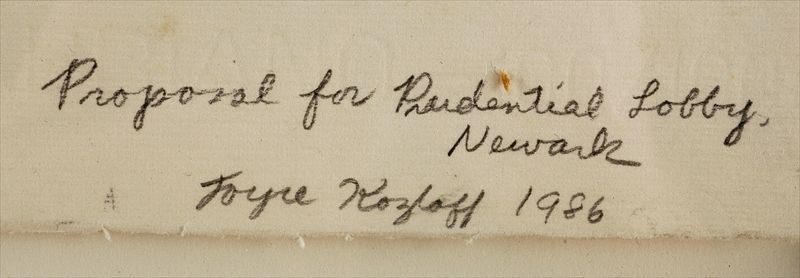 Proposal for Prudential Lobby,
Newark
Joyce Kozloff 1986